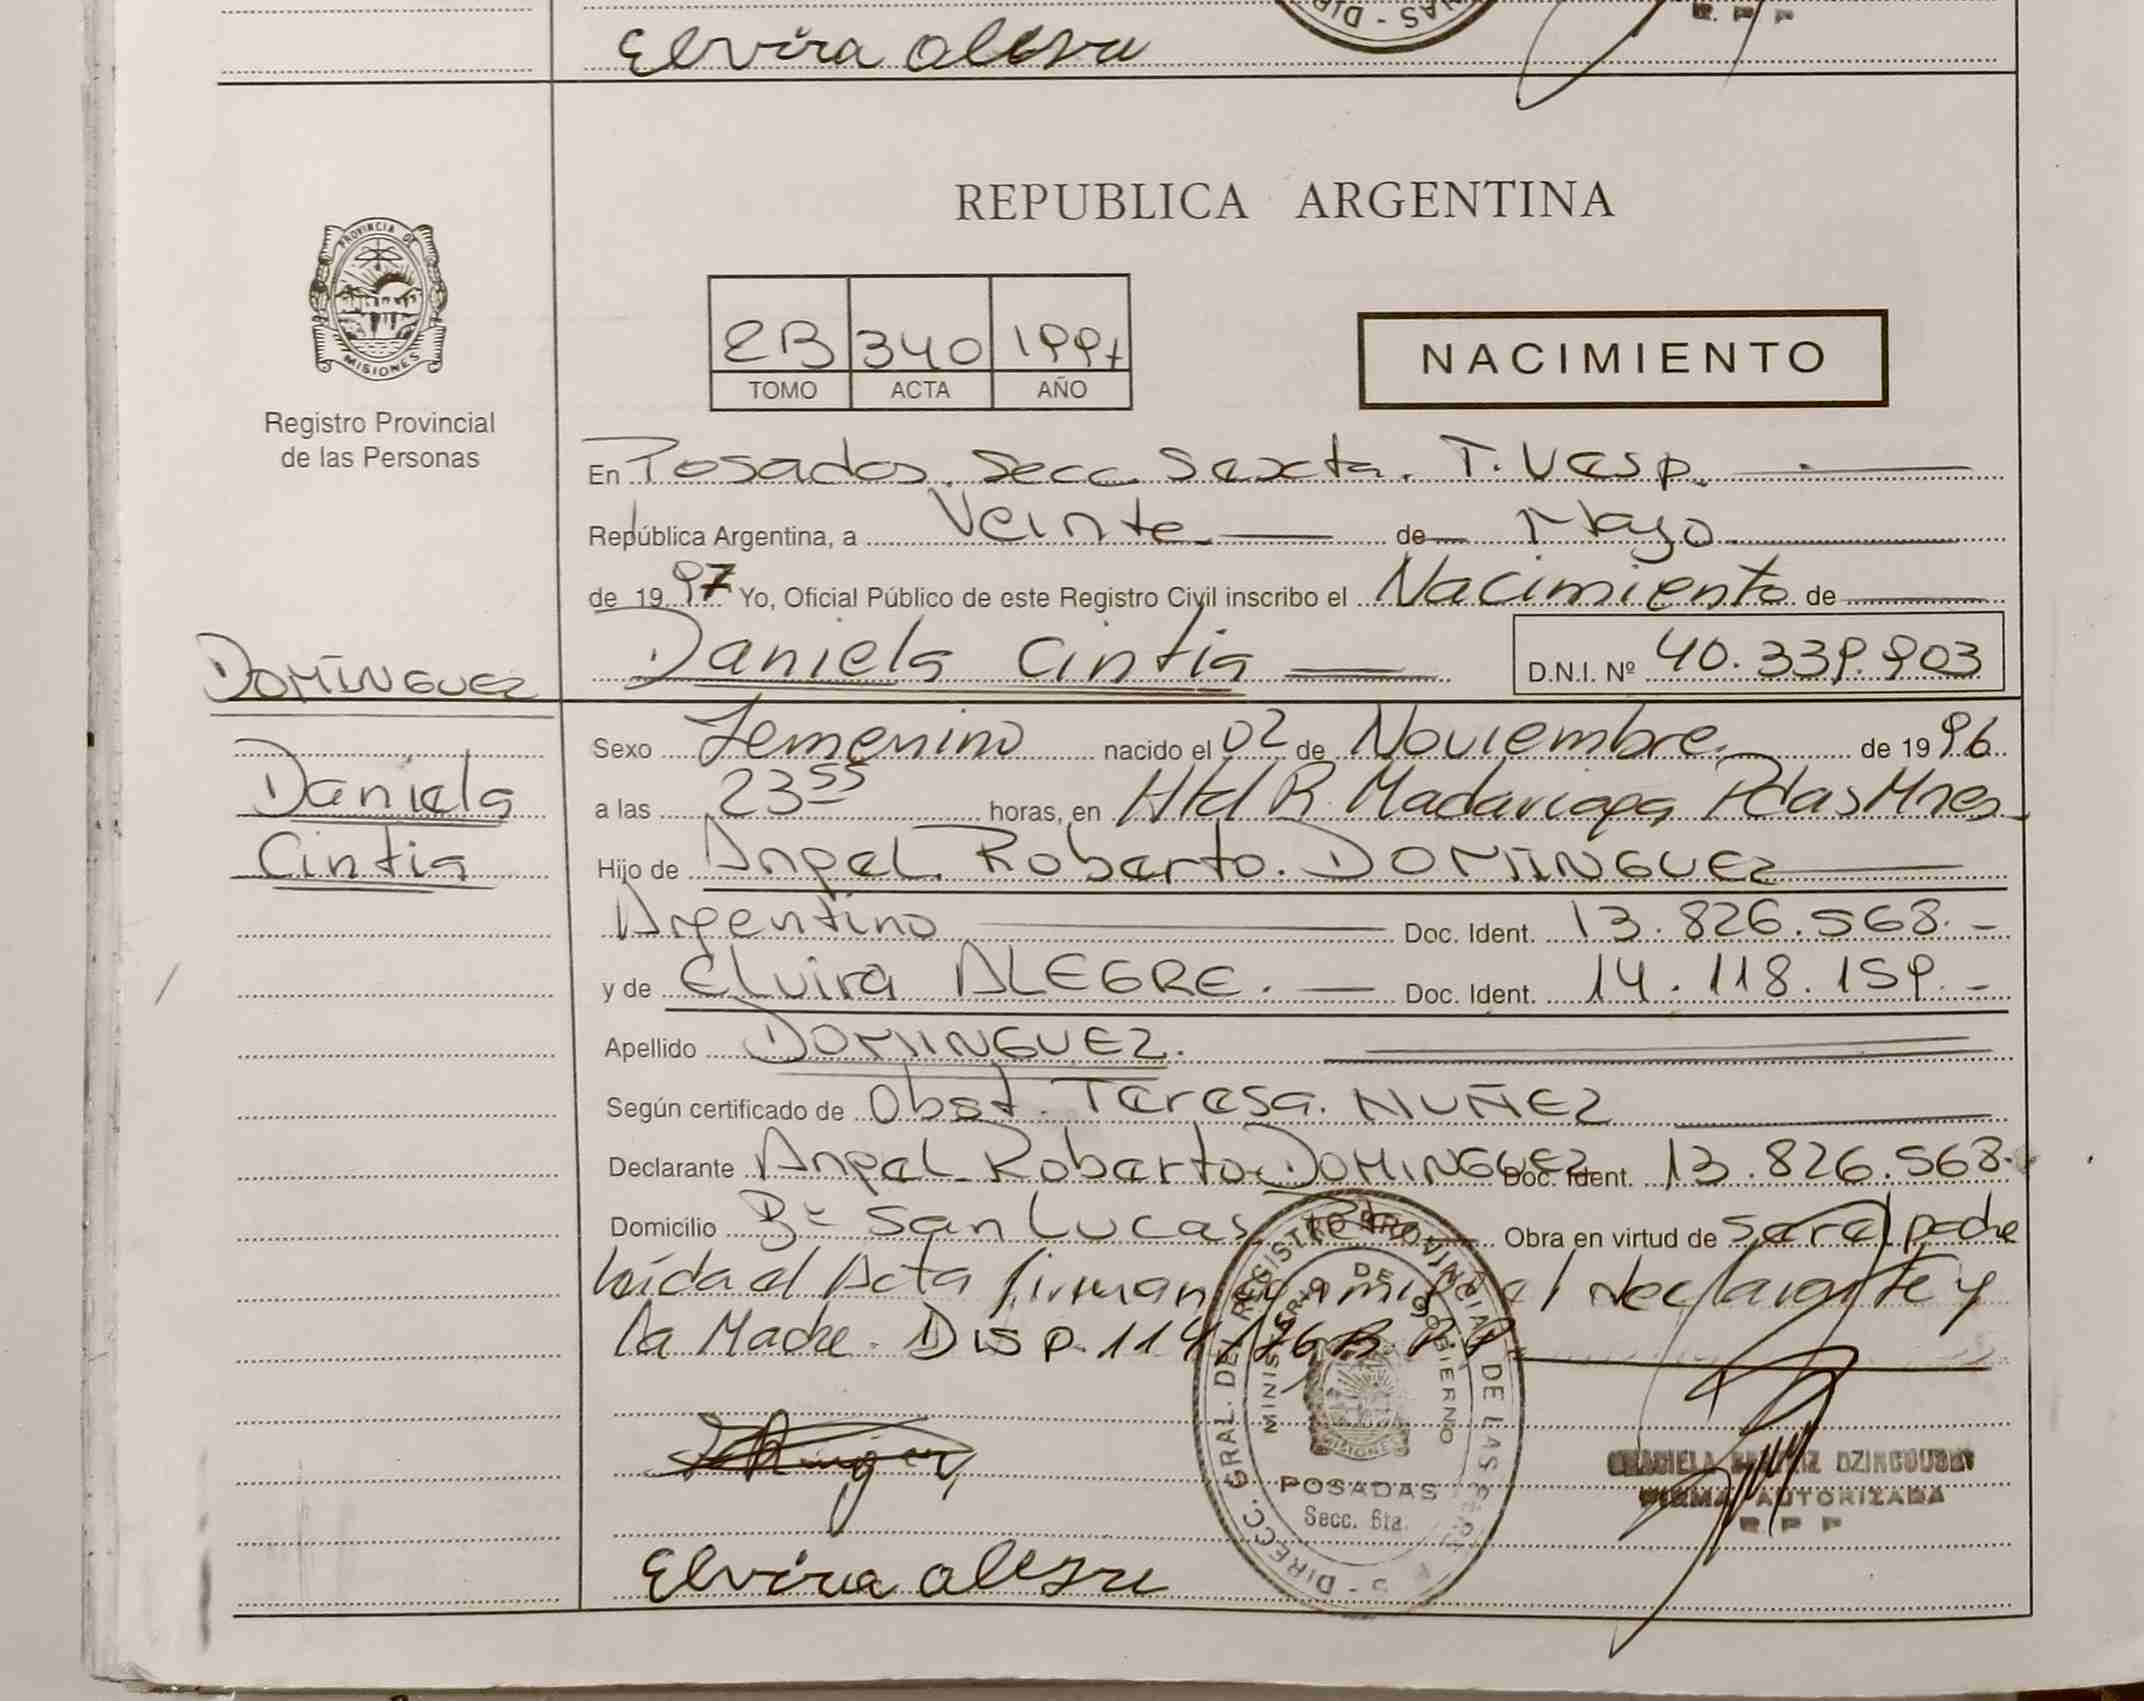 Elvira Alegre
PROVINCIA DE
MISIONES
Registro Provincial
de las Personas
REPUBLICA ARGENTINA
2B 340 1997
TOMO ACTA AÑO
NACIMIENTO
En Posadas. Secc. Sexta. T. Vesp.
República Argentina, a Veinte de Mayo
de 1997 Yo, Oficial Público de este Registro Civil inscribo el Nacimiento de
Daniela Cintia D.N.I. Nº 40.339.903
DOMINGUEZ
Daniela
Cintia
Sexo Femenino nacido el 02 de Noviembre. de 1996
a las 23 55 horas, en Htal R. Madariaga Pdas Mnes
Hijo de Angel Roberto. DOMINGUEZ
Argentino Doc. Ident. 13.826.568.-
y de Elvira ALEGRE. Doc. Ident. 14.118.159.-
Apellido DOMINGUEZ.
Según certificado de Obst. Teresa. NUÑEZ
Declarante Angel Roberto DOMINGUEZ Doc. Ident. 13.826.568.
Domicilio Bº San Lucas Obra en virtud de ser el padre
leída el Acta firman conmigo el declarante y
la Madre. Disp. 114/76
DIRECC. GRAL. DEL REGISTRO PROVINCIAL DE LAS PERSONAS
MINISTERIO DE GOBIERNO
MISIONES
POSADAS
Secc. 6ta.
GRACIELA BEATRIZ
FIRMA AUTORIZADA
R. P. P.
Elvira Alegre